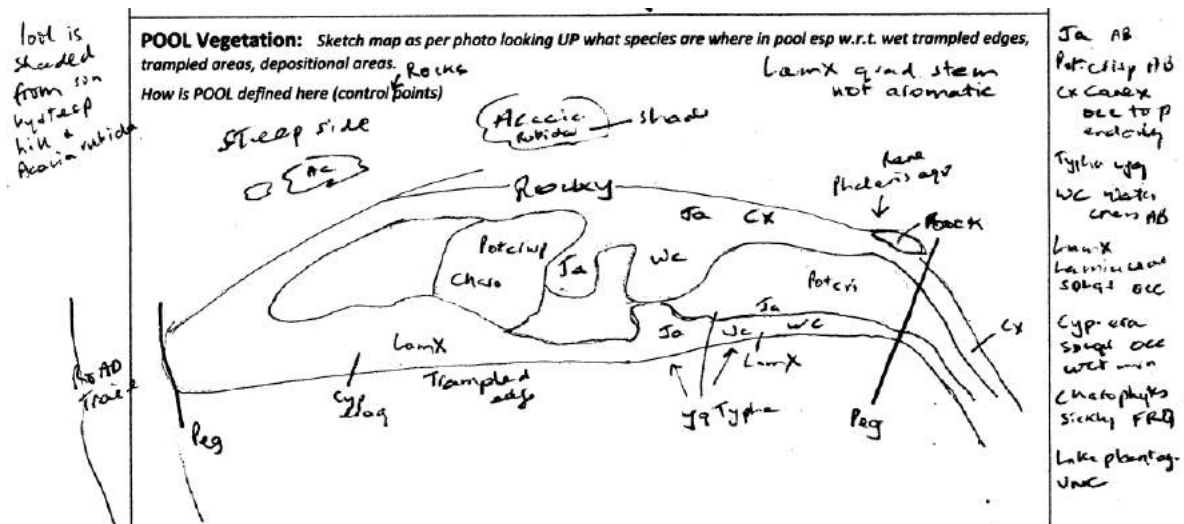 Pool is
shaded
from sun
by steep
hill &
Acacia rubida
POOL Vegetation: Sketch map as per photo looking UP what species are where in pool esp w.r.t. wet trampled edges,
trampled areas, depositional areas.
How is POOL defined here (control points)
Rocks
LamX quad stem
not aromatic
Steep side
Acacia
Rubida
shade
AC
Rocky
Rare
Phalaris aqu
Rock
Ja CX
Potcrisp
Chara
Ja
WC
Potcris
Ja
Ja
WC
WC
LamX
CX
LamX
Trampled
edge
Cyp
erag
yg Typha
Peg
Peg
ROAD
Ja AB
Pot.crisp AB
CX Carex
occ top
end only
Typha yg
WC Water
cress AB
LamX
spksgs occ
Cyp. era
occ
Charophytes
sickly FRQ
Lake plantag.
UNC